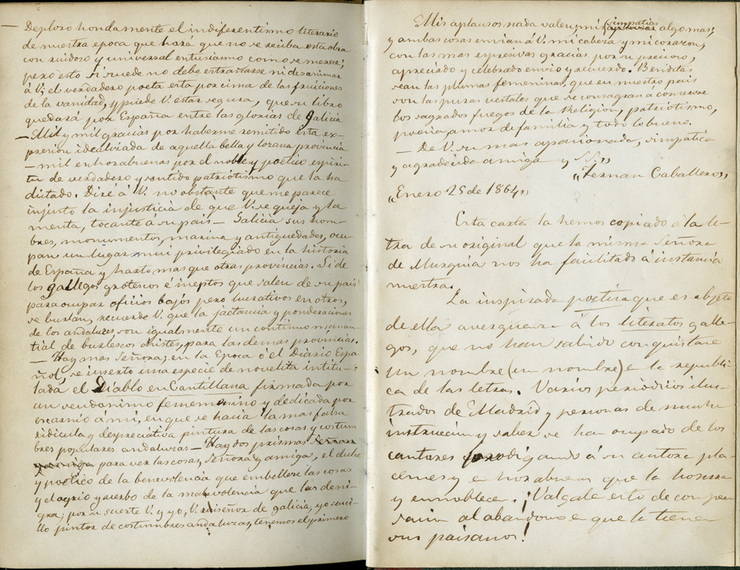 Deploro hondamente el indiferentismo literario
de nuestra epoca que hará que no se reciba esta obra
con ruidoso y universal entusiasmo como se merece,
pero esto si puede no debe estrañarse ni desanimar
á V; el verdadero poeta está por cima de las fruiciones
de la vanidad, y puede V. estar segura, que su libro
quedará por España entre las glorias de Galicia
— Mil y mil gracias por haberme remitido esta ex-
presion idealizada de aquella bella y lozana provincia
— mil enhorabuenas por el noble y poetico espiri-
tu de verdadero y santido patriotismo que la ha
dictado. Diré á V. no obstante que me parece
injusto la injusticia de que V. se queja y la-
menta, tocante á su pais — Galicia sus hom-
bres, monumentos, marina y antiguedades, ocu-
pan un lugar muy privilegiado en la historia
de España y harto mas que otras provincias. Si de
los gallegos groteros é ineptos que salen de su pais
para ocupar oficios bajos pero lucrativos en otros,
se burlan, recuerde V. que la jactancia y ponderaciones
de los andaluces son igualmente un continuo manan-
tial de burlescos chistes, para las demas provincias.
— Hay mas Señora; en la Epoca ó el Diario Espa-
ñol, se insertó una especie de novelita intitu-
lada el Diablo en Cantillana firmada por
un seudonimo femenino y dedicada por
encarnio á mi, en que se hacia la mas falsa
ridicula y depreciativa pintura de las cosas y costum-
bres populares andaluzas — Hay dos prismas
para ver las cosas, Señora y amiga, el dulce
y poetico de la benevolencia que embellece las cosas
y el agrio y acerbo de la malevolencia que las deni-
gra; por su suerte V. y yo, V. ruiseñor de galicia, yo senci-
llo pintor de costumbres andaluzas, tenemos el primero
Mis aplausos nada valen, mis simpatias algo mas,
y ambas cosas envian á V. mi cabeza y mi corazon,
con las mas espresivas gracias por su precioso,
apreciado y celebrado envio y recuerdo. Benditas
sean las plumas femeninas, que en nuestro pais
son las puras vestales que se consagran á conservar
los sagrados fuegos de la Religion, patriotismo,
poesia, amor de familia y todo lo bueno.
— De V. su mas apasionada, simpatica
y agradecida amiga y S.
„Fernan Caballero„
„Enero 25 de 1864„
Esta carta la hemos copiado á la le-
tra de su original que la misma Señora
de Murguia nos ha facilitado á instancia
nuestra.
La inspirada poetisa que es objeto
de ella averguenza á los literatos galle-
gos, que no han sabido conquistarse
un nombre (un nombre) en la republi-
ca de las letras. Varios periodicos ilus-
trados de Madrid y personas de mucha
instruccion y saber se han ocupado de los
cantares prodigando á su autora pla-
cemes y enhorabuenas que la honran
y ennoblece. ¡Valgale esto de compen-
sacion al abandono en que la tienen
sus paisanos!